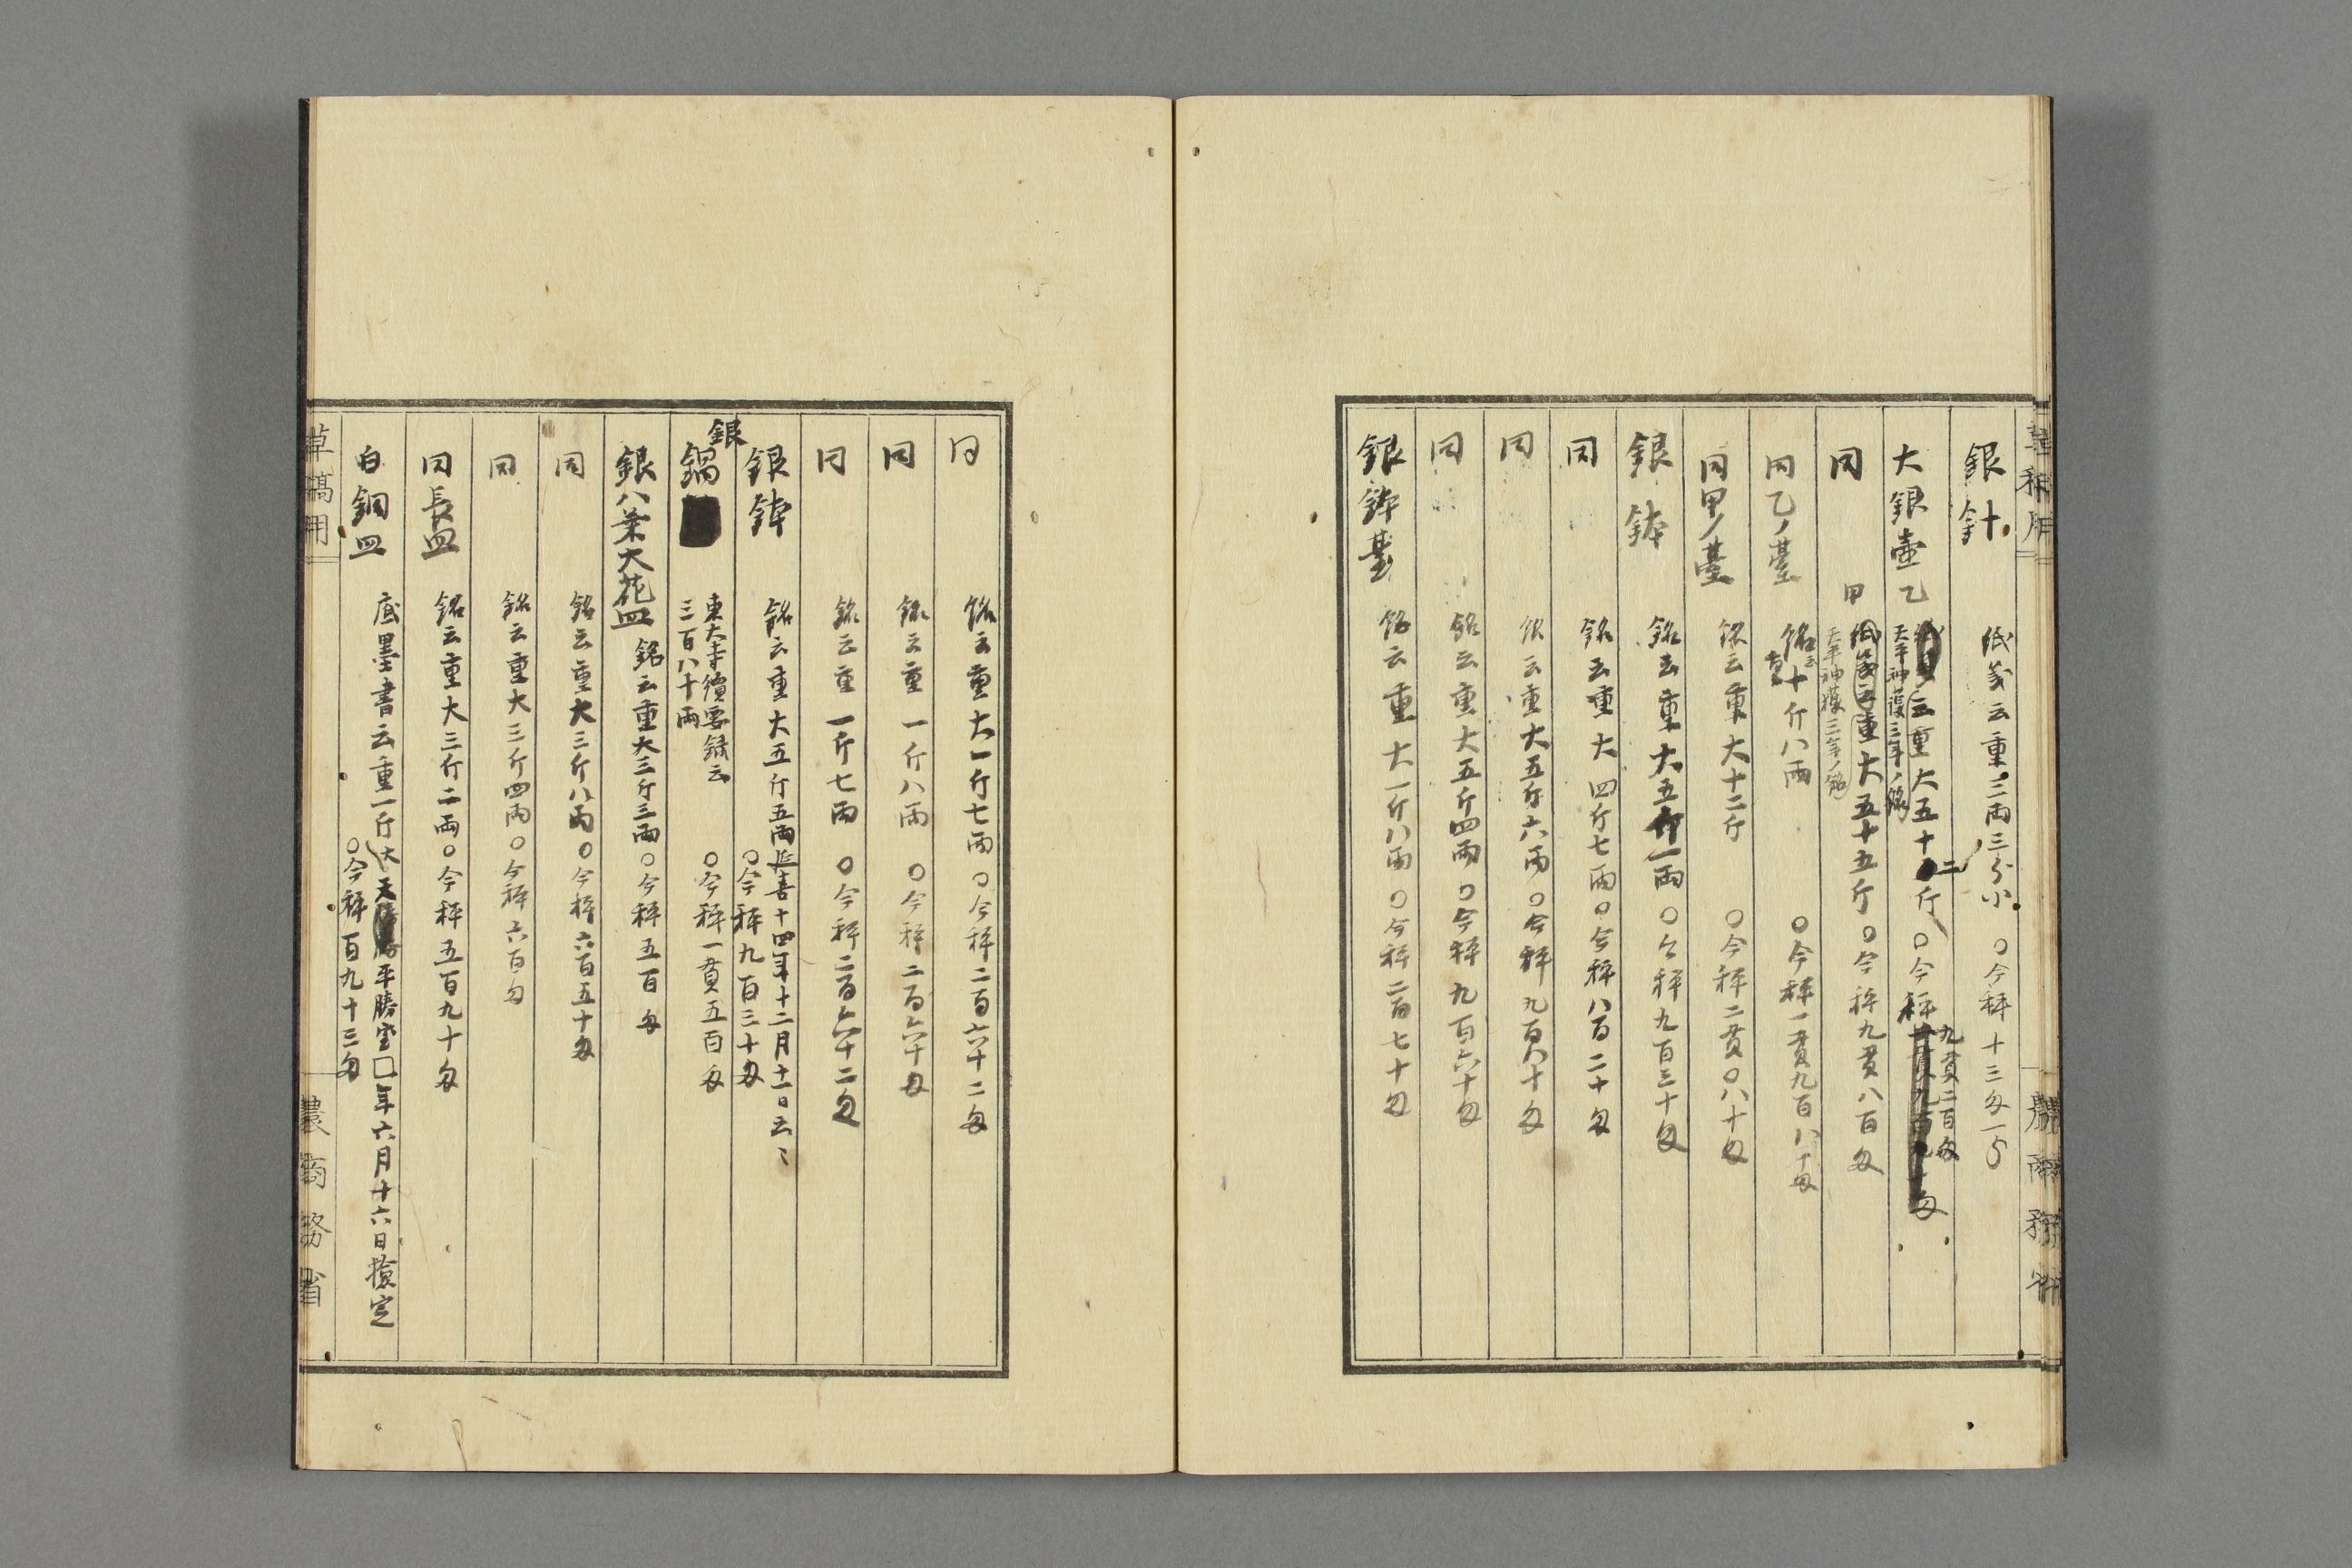 銀針 紙箋云重三両三分小 〇今秤十三匁一分
大銀壺 乙 云重大五十二斤 〇今秤九貫二百匁
天平神護三年ノ銘
同 甲 紙箋云重大五十五斤 〇今秤九貫八百匁
天平神護三年ノ銘
同乙ノ臺 銘云重十斤八両 〇今秤一貫九百八十匁
同甲ノ臺 銘云重大十二斤 〇今秤二貫〇八十匁
銀鉢 銘云重大五斤一両 〇今秤九百三十匁
同 銘云重大四斤七両 〇今秤八百二十匁
同 銘云重大五斤六両 〇今秤九百八十匁
同 銘云重大五斤四両 〇今秤九百六十匁
銀鉢臺 銘云重大一斤八両 〇今秤二百七十匁
同 銘云重大一斤七両 〇今秤二百六十二匁
同 銘云重一斤八両 〇今秤二百六十匁
同 銘云重一斤七両 〇今秤二百六十二匁
銀鉢 銘云重大五斤五両 延喜十四年十二月十一日云々
〇今秤九百三十匁
銀鍋 東大寺續要録云
三百八十両 〇今秤一貫五百匁
銀八葉大花皿 銘云重大三斤三両 〇今秤五百匁
同 銘云重大三斤八両 〇今秤六百五十匁
同 銘云重大三斤四両 〇今秤六百匁
同長皿 銘云重大三斤二両 〇今秤五百九十匁
白銅皿 底墨書云重一斤大 天平勝宝□年六月十六日撿定
〇今秤百九十三匁
草稿用
農商務省